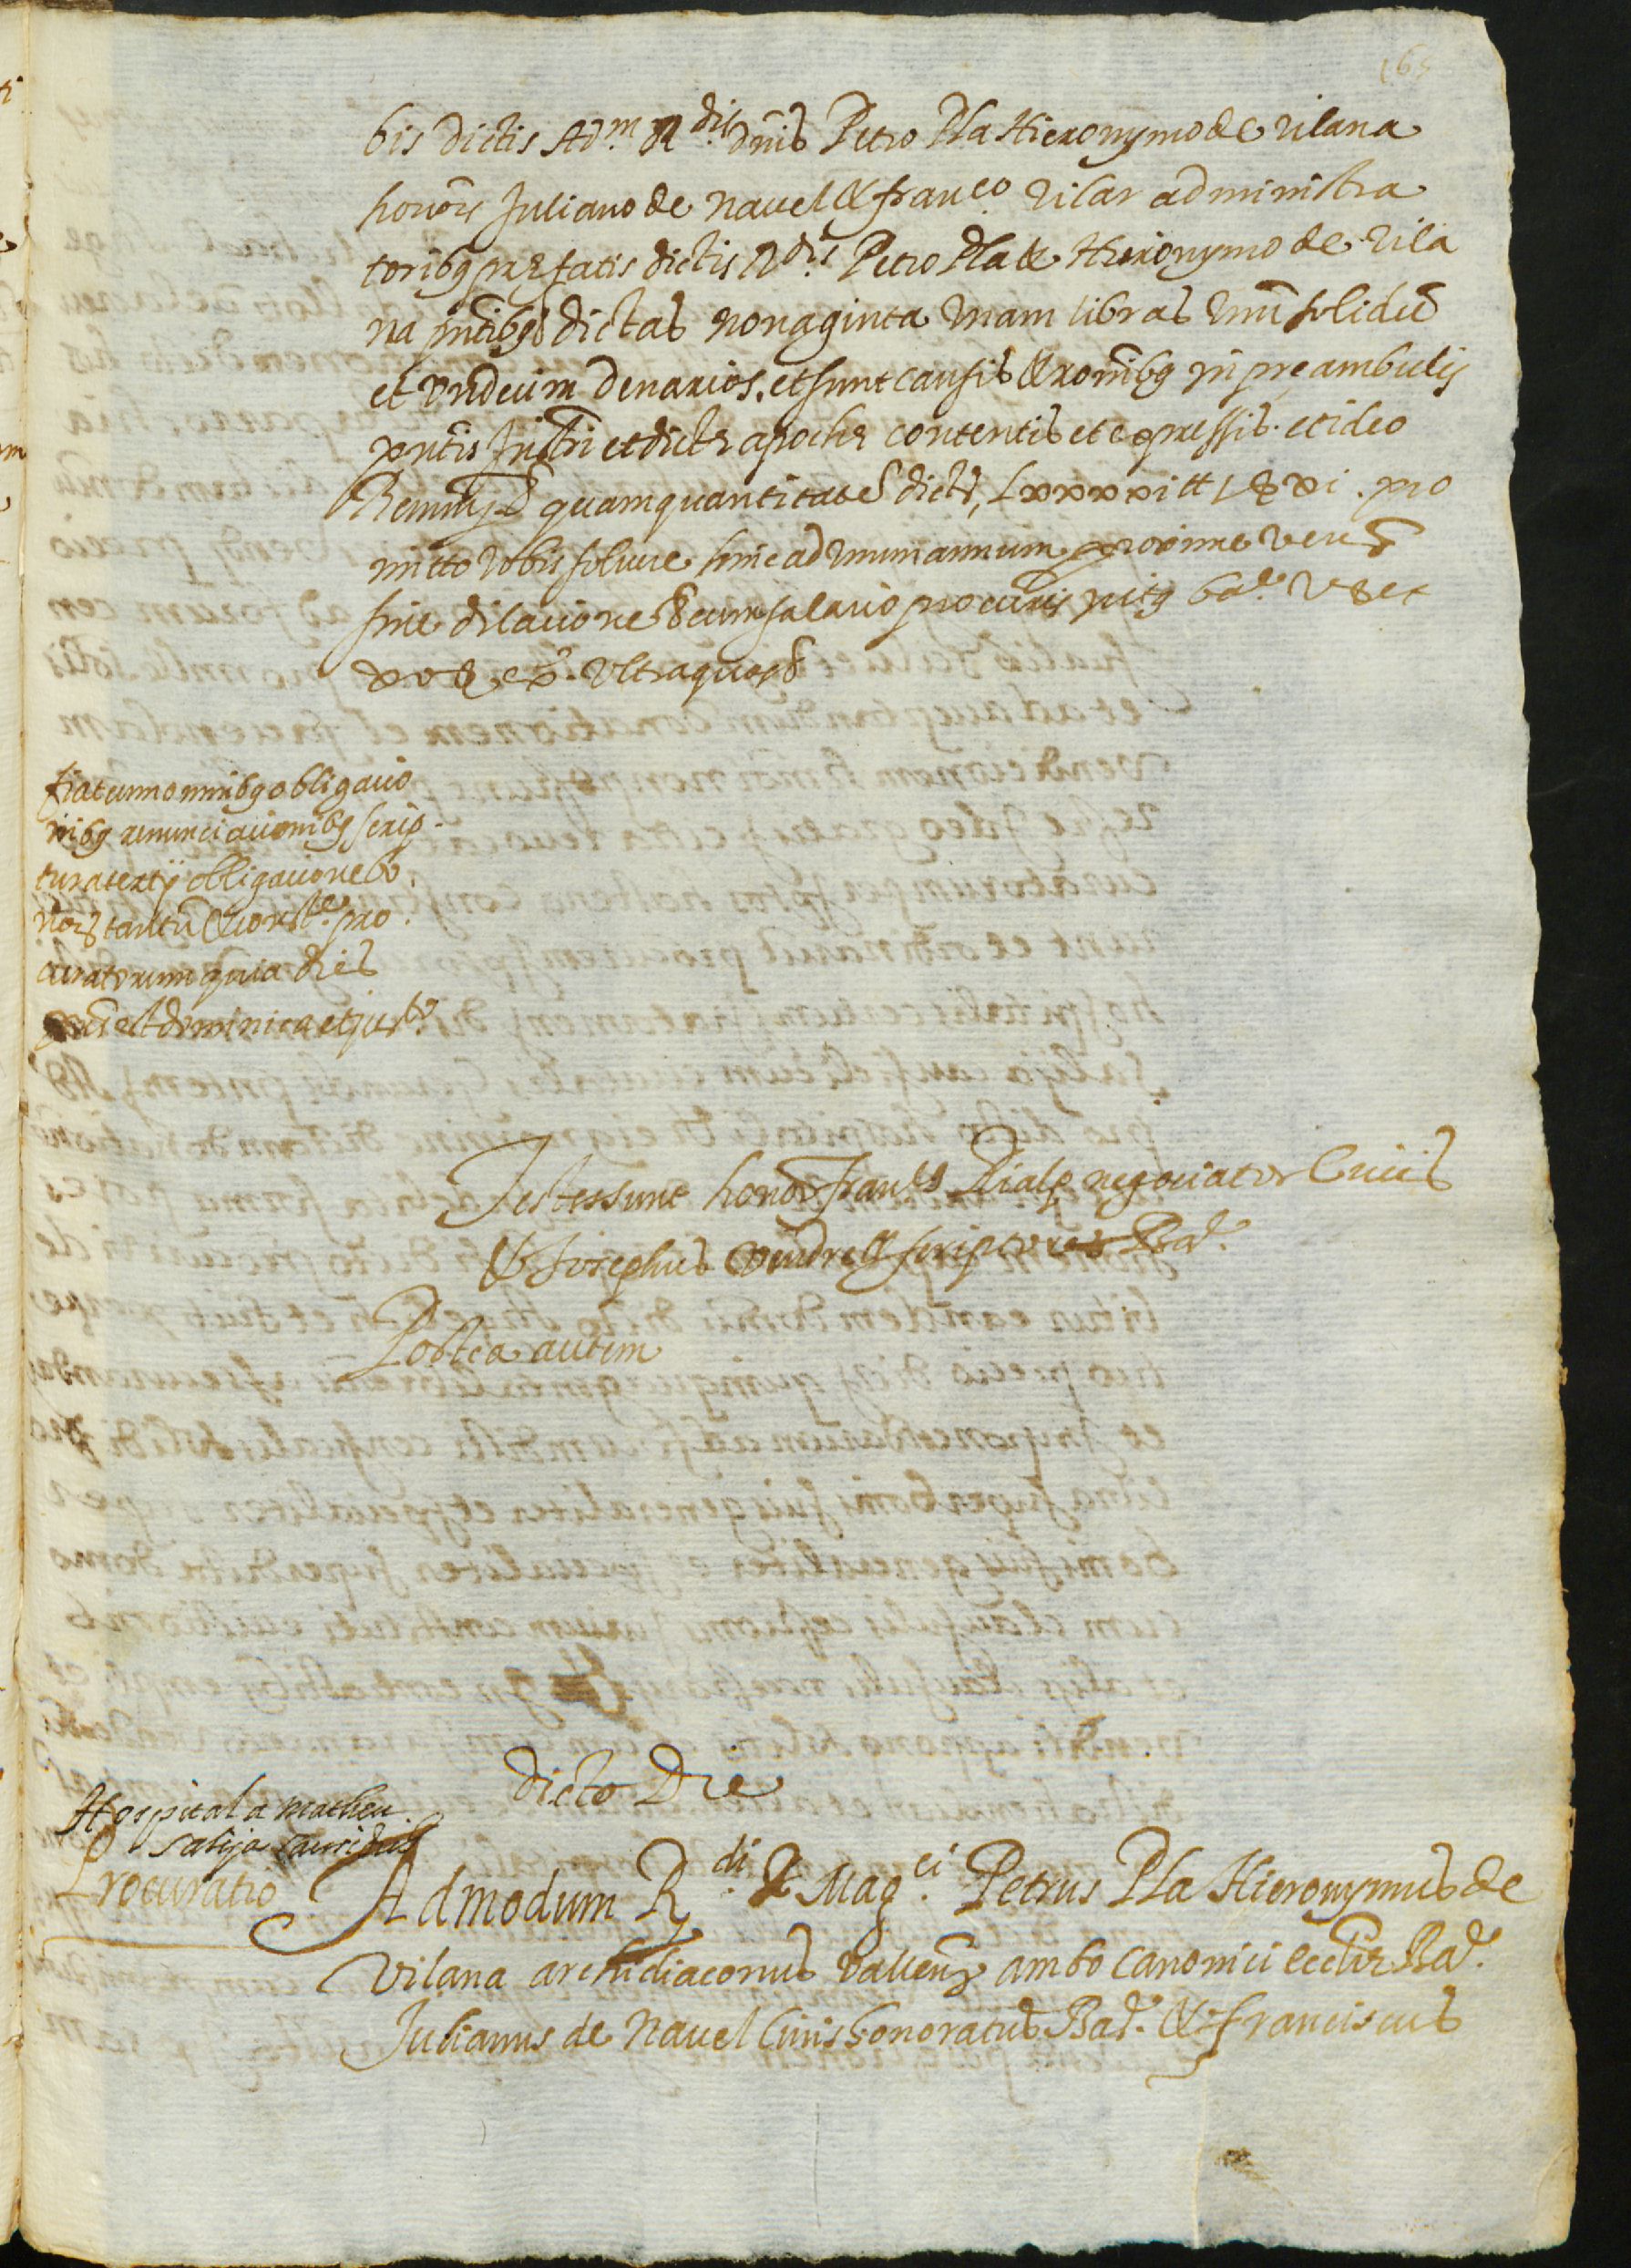 165
bis dictis Adm. Rdis. dnis Petro Pla Hieronymo de vilana
honor. Juliano de Navel & franco. vilar administra
toribq prefatis dictis Rdis. Petro Pla & Hieronymo de vila
na pntibq dictas nonaginta unam libras unu solidu
et undecim denarios. et sunt causis & ronibq in preambulis
pntis Instri et dicte apoche contentis et expressis. et ideo
Renun quam quantitate dictar Lxxxxi tt I s xi. pro
mitto vobis solvere hinc ad unum annum proxime
sine dilacione & cum salario procuris intq bar. v s et
x s ex. Ultra quos
fiat cum omnibq obligacio
nibq renunciacionibq scrip
tura tertij obligacione bo
nors tantu & constne. pro
curatorum quia dies
pns est dominica et jurto.
Testes sunt honor francs Rialp negociator Civis
& Josephus vendrell scriptor Bar.
Postea autem
dicto Die
Hospital a Matheu
Salijo
Procuratio
Admodum Rdi. & Magci. Petrus Pla Hieronymus de
Vilana archidiaconus vallen ambo Canonici Ecclie Bar.
Julianus de Navel Civis honoratus Bar. & franciscus